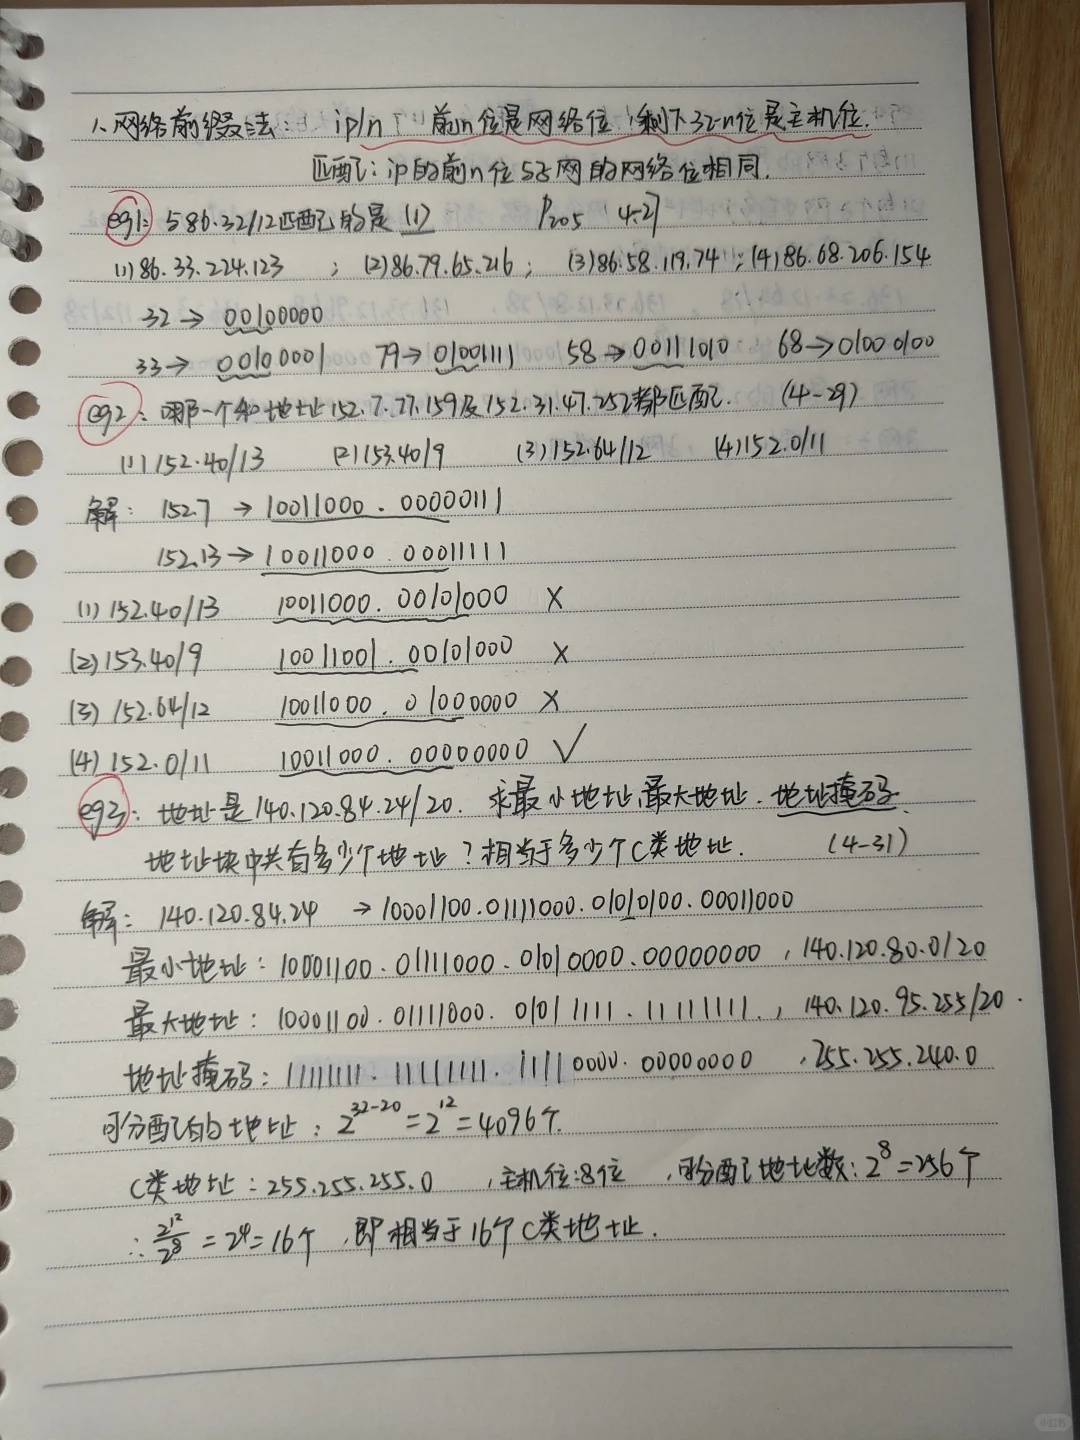 1、网络前缀法： ip/n 前n位是网络位，剩下32-n位是主机位.
匹配：ip的前n位与子网的网络位相同.
eg1：586.32/12匹配的是 (1) P205 4.27
(1)86.33.224.123 ；(2)86.79.65.216；(3)86.58.119.74；(4)86.68.206.154
32→00100000
33→00100001 79→01001111 58→00111010 68→01000100
eg2：哪一个和地址152.7.77.159及152.31.47.252都匹配. (4-29)
(1)152.40/13 (2)153.40/9 (3)152.64/12 (4)152.0/11
解： 152.7 → 10011000 . 00000111
152.13→10011000 00011111
(1) 152.40/13 10011000. 00101000 ×
(2)153.40/9 10011001 . 00101000 ×
(3) 152.64/12 10011000 . 01000000 ×
(4) 152.0/11 10011000 . 00000000 √
eg3：地址是140.120.84.24/20. 求最小地址，最大地址. 地址掩码.
地址块中共有多少个地址？相当于多少个C类地址. (4-31)
解： 140.120.84.24 →10001100.01111000.01010100.00011000
最小地址：10001100.01111000.01010000.00000000 ，140.120.80.0/20
最大地址：10001100.01111000. 01011111.11111111.，140.120.95.255/20.
地址掩码：11111111. 11111111. 11110000. 00000000 ，255.255.240.0
可分配的地址：2^32-20=2^12=4096个.
C类地址：255.255.255.0 ，主机位:8位 ，可分配地址数：2^8=256个
∴ 2^12/2^8 = 2^4=16个，即相当于16个C类地址.